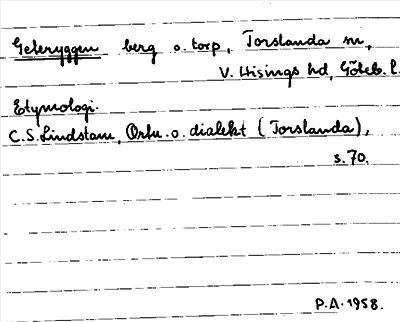 Geteryggen berg o. torp, Torslanda sn,
V. Hisings hd, Göteb. l.
Etymologi.
C.S. Lindstam, Ortn. o. dialekt (Torslanda),
s. 70.
P.A. 1958.